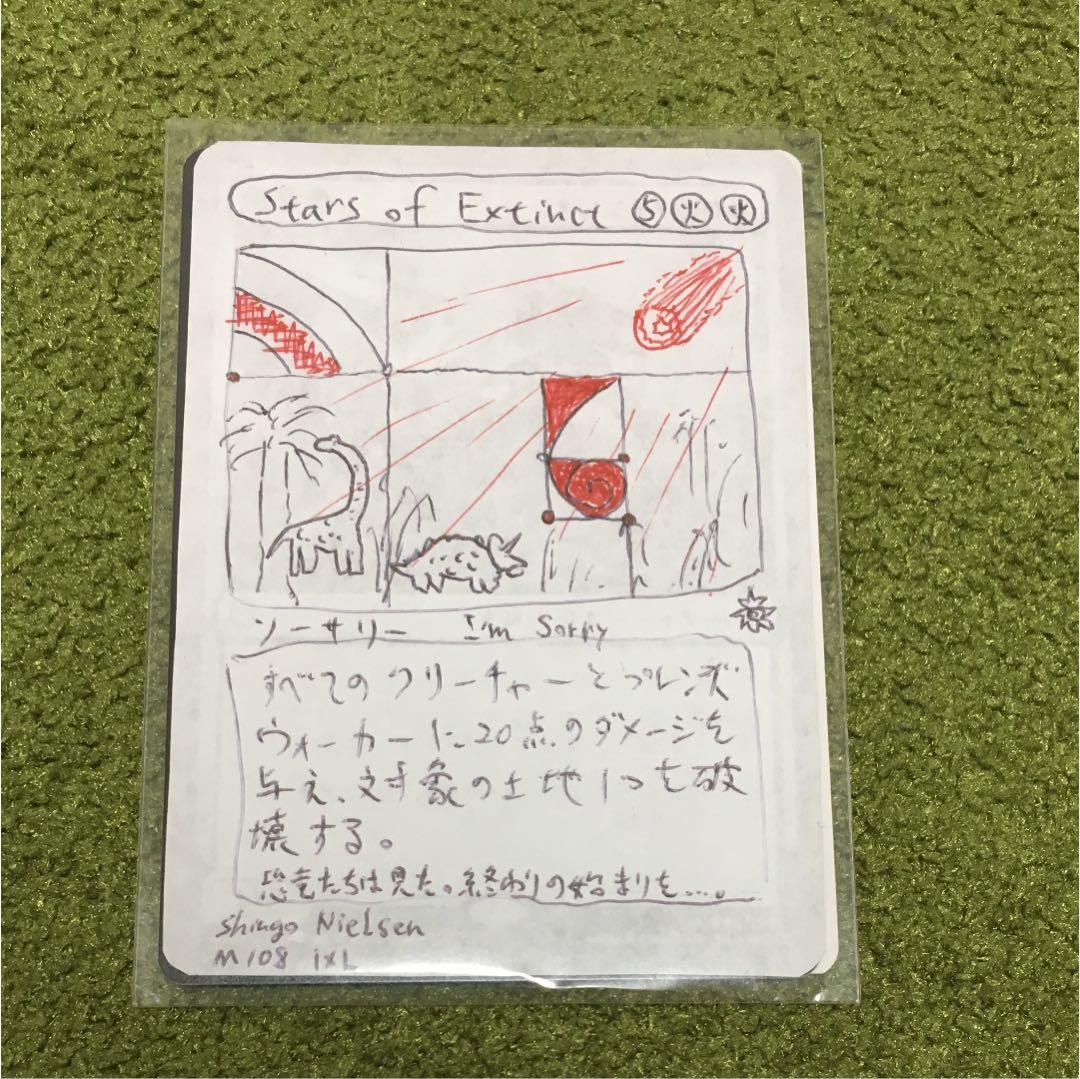 Stars of Extinct 5 火 火
ソーサリー I'm Sorry
すべてのクリーチャーとプレンズ
ウォーカーに20点のダメージを
与え、対象の土地1つを破
壊する。
恐竜たちは見た。終わりの始まりを....。
Shingo Nielsen
M108 IXL